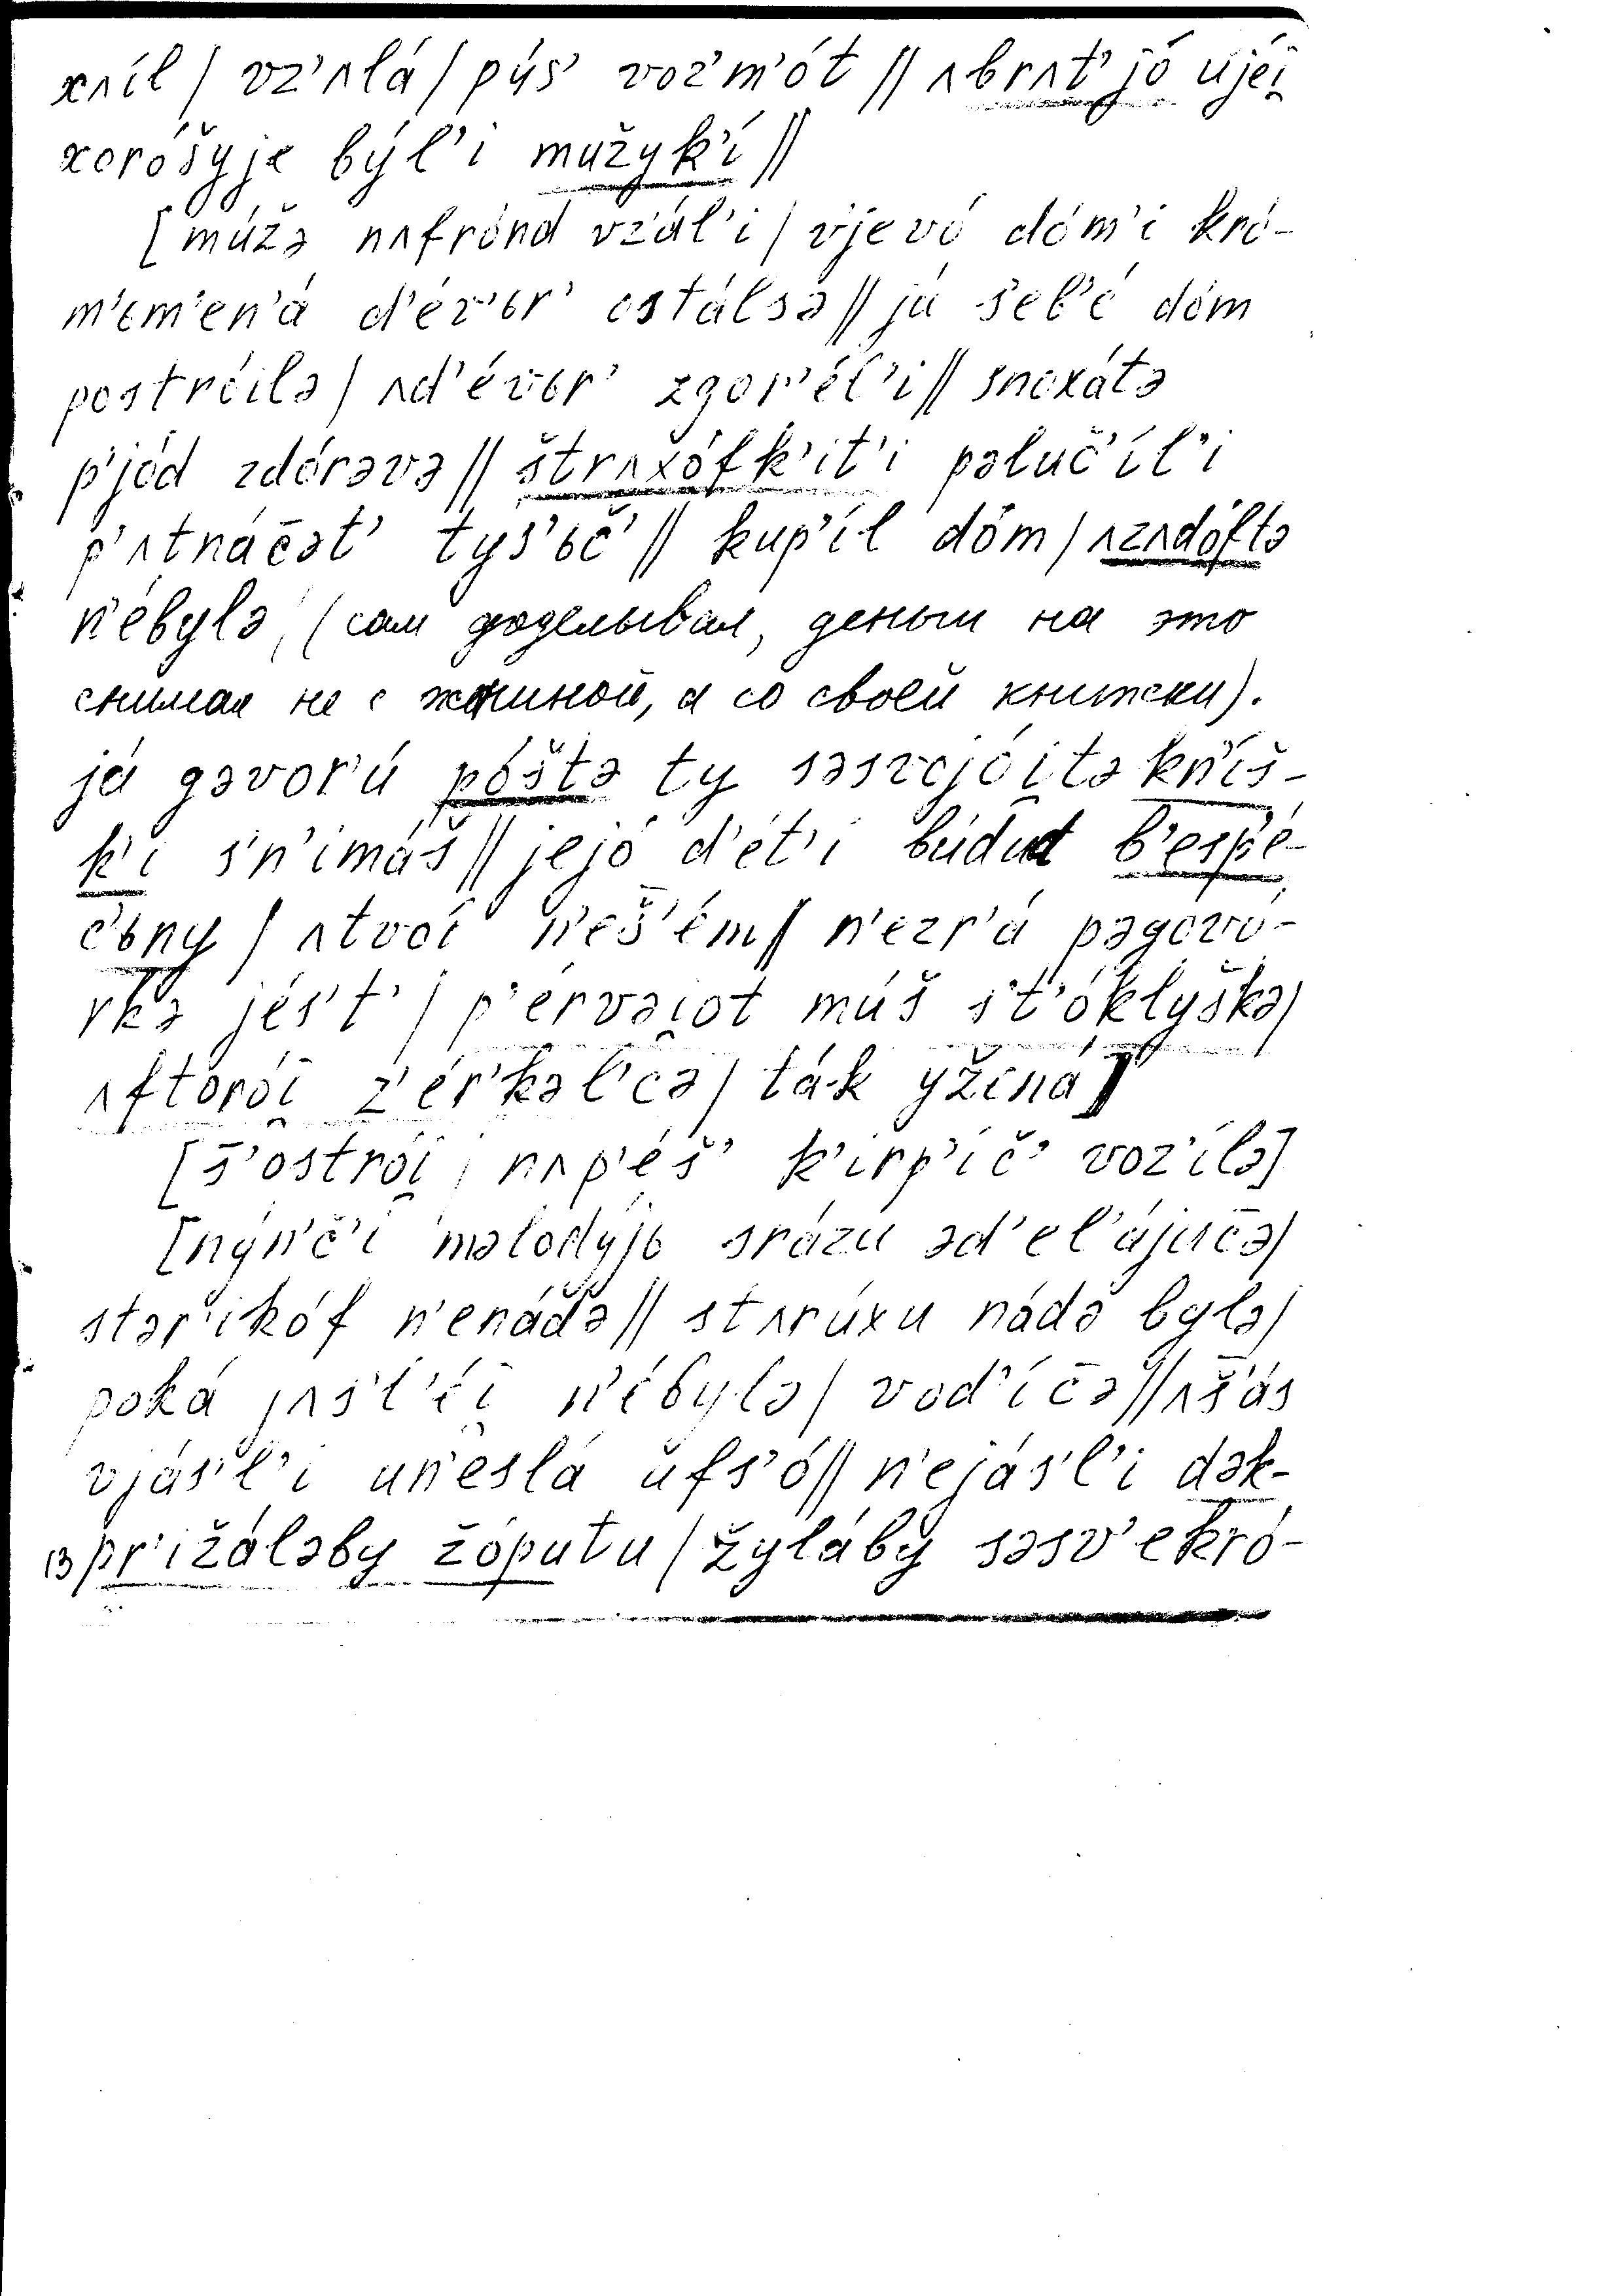 xʌíl / vz'ʌlá / pýs' voz'm'ót // ʌbrʌt'jó ujéi̯
xoróšyje býl'i mužyk'í //
[múžə nʌfrónd vz'ál'i / v'jevó dóm'i kró-
m'ьm'en'á d'év'ьr' ostálsə // já s'eb'é dóm
postróilə / ʌd'év'ьr' zgor'él'i // snoxátə
p'jód zdórəvə // štrʌxófk'it'i pəluč'íl'i
p'ʌtnác̄ət' týs'ьč' // kup'íl dóm / ʌzʌdóftə
n'ébylə, (сам доделывал, деньги на это
снимал не с жениной, а со своей книжки).
já gəvor'ú póštə ty səsvojói̯tə kn'íš-
k'i s'n'imáš // jejó d'ét'i búdut b'esp'é-
č'ьny / ʌtvoí n'eš̄'ém // n'ezr'á pəgovó-
rkə jés't' / p'érvəi̯ot múš s't'óklyškə /
ʌftorói̯ z'ér'kəl'cə / ták yžená]
[s̄'ostrói̯ / nʌp'éš' k'irp'íč' voz'ílə]
[nýn'č'i məlodýjь srázu əd'el'ájuc̄ə /
stər'ikóf n'enádə // stʌrúxu nádə bylə /
poká jʌs'l'éi̯ n'ébylə / vod'íc̄ə // ʌš̄'ás
vjás'l'i un'eslá ufs'ó // n'ejás'l'i dək-
pr'ižáləby žóputu / žyláby səsv'ekró-